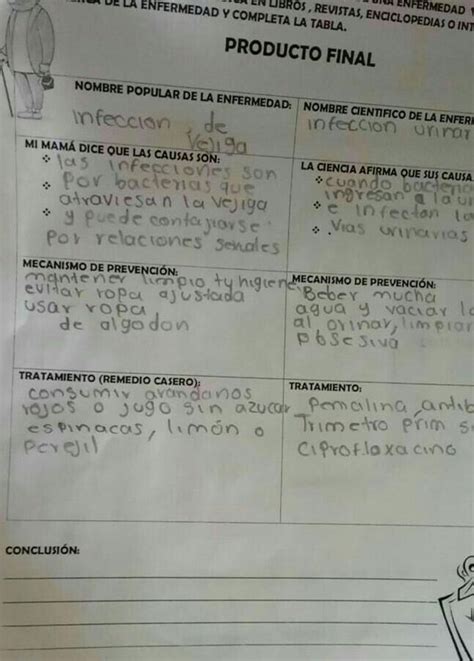 DE LA ENFERMEDAD Y COMPLETA LA TABLA.
EN LIBROS, REVISTAS, ENCICLOPEDIAS O INT
UNA ENFERMEDAD Y
PRODUCTO FINAL
NOMBRE POPULAR DE LA ENFERMEDAD:
infeccion de
Vejiga
NOMBRE CIENTIFICO DE LA ENFER
infeccion urinar
MI MAMÁ DICE QUE LAS CAUSAS SON:
las infecciones son
por bacterias que
atraviesan la vejiga
y puede contajiarse
por relaciones
LA CIENCIA AFIRMA QUE SUS CAUSA
cuando bacteria
ingresan a la u
e infectan la
Vias urinarias
MECANISMO DE PREVENCIÓN:
mantener limpio tu higiene
evitar ropa ajustada
usar ropa
de algodon
MECANISMO DE PREVENCIÓN:
Beber mucha
agua y vaciar la
al orinar, limpiar
TRATAMIENTO (REMEDIO CASERO):
consumir arandanos
rojos o jugo sin azucar
espinacas, limón o
perejil
TRATAMIENTO:
antib
Trimetro prim s
Ciprofloxacino
CONCLUSIÓN: